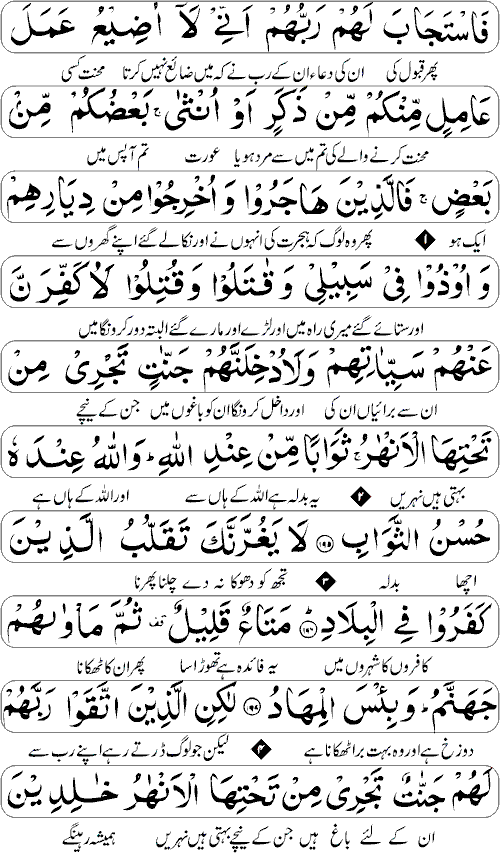 فَاسْتَجَابَ لَهُمْ رَبُّهُمْ اَنِّیْ لَاۤ اُضِیْعُ عَمَلَ
پھر قبول کی ان کی دعاء ان کے رب نے کہ میں ضائع نہیں کرتا محنت کسی
عَامِلٍ مِّنْكُمْ مِّنْ ذَكَرٍ اَوْ اُنْثٰی ۚ بَعْضُكُمْ مِّنْۢ
محنت کرنے والے کی تم میں سے مرد ہو یا عورت تم آپس میں
بَعْضٍ ۚ فَالَّذِیْنَ هَاجَرُوْا وَ اُخْرِجُوْا مِنْ دِیَارِهِمْ
ایک ہو ۱ پھر وہ لوگ کہ ہجرت کی انہوں نے اور نکالے گئے اپنے گھروں سے
وَ اُوْذُوْا فِیْ سَبِیْلِیْ وَ قٰتَلُوْا وَ قُتِلُوْا لَاُكَفِّرَنَّ
اور ستائے گئے میری راہ میں اور لڑے اور مارے گئے البتہ دور کرونگا میں
عَنْهُمْ سَیِّاٰتِهِمْ وَلَاُدْخِلَنَّهُمْ جَنّٰتٍ تَجْرِیْ مِنْ
ان سے برائیاں ان کی اور داخل کرونگا ان کو باغوں میں جن کے نیچے
تَحْتِهَا الْاَنْهٰرُ ۚ ثَوَابًا مِّنْ عِنْدِ اللّٰهِ ؕ وَاللّٰهُ عِنْدَهٗ
بہتی ہیں نہریں ۲ یہ بدلہ ہے اللہ کے ہاں سے اور اللہ کے ہاں ہے
حُسْنُ الثَّوَابِ ۱۹۵ لَا یَغُرَّنَّكَ تَقَلُّبُ الَّذِیْنَ
اچھا بدلہ ۳ تجھ کو دھوکا نہ دے چلنا پھرنا
كَفَرُوْا فِی الْبِلَادِ ؕ ۱۹۶ مَتَاعٌ قَلِیْلٌ ۫ ثُمَّ مَاْوٰىهُمْ
کافروں کا شہروں میں یہ فائدہ ہے تھوڑا سا پھر ان کا ٹھکانا
جَهَنَّمُ ؕ وَبِئْسَ الْمِهَادُ ۱۹۷ لٰكِنِ الَّذِیْنَ اتَّقَوْا رَبَّهُمْ
دوزخ ہے اور وہ بہت برا ٹھکانا ہے ۴ لیکن جو لوگ ڈرتے رہے اپنے رب سے
لَهُمْ جَنّٰتٌ تَجْرِیْ مِنْ تَحْتِهَا الْاَنْهٰرُ خٰلِدِیْنَ
ان کے لئے باغ ہیں جن کے نیچے بہتی ہیں نہریں ہمیشہ رہینگے